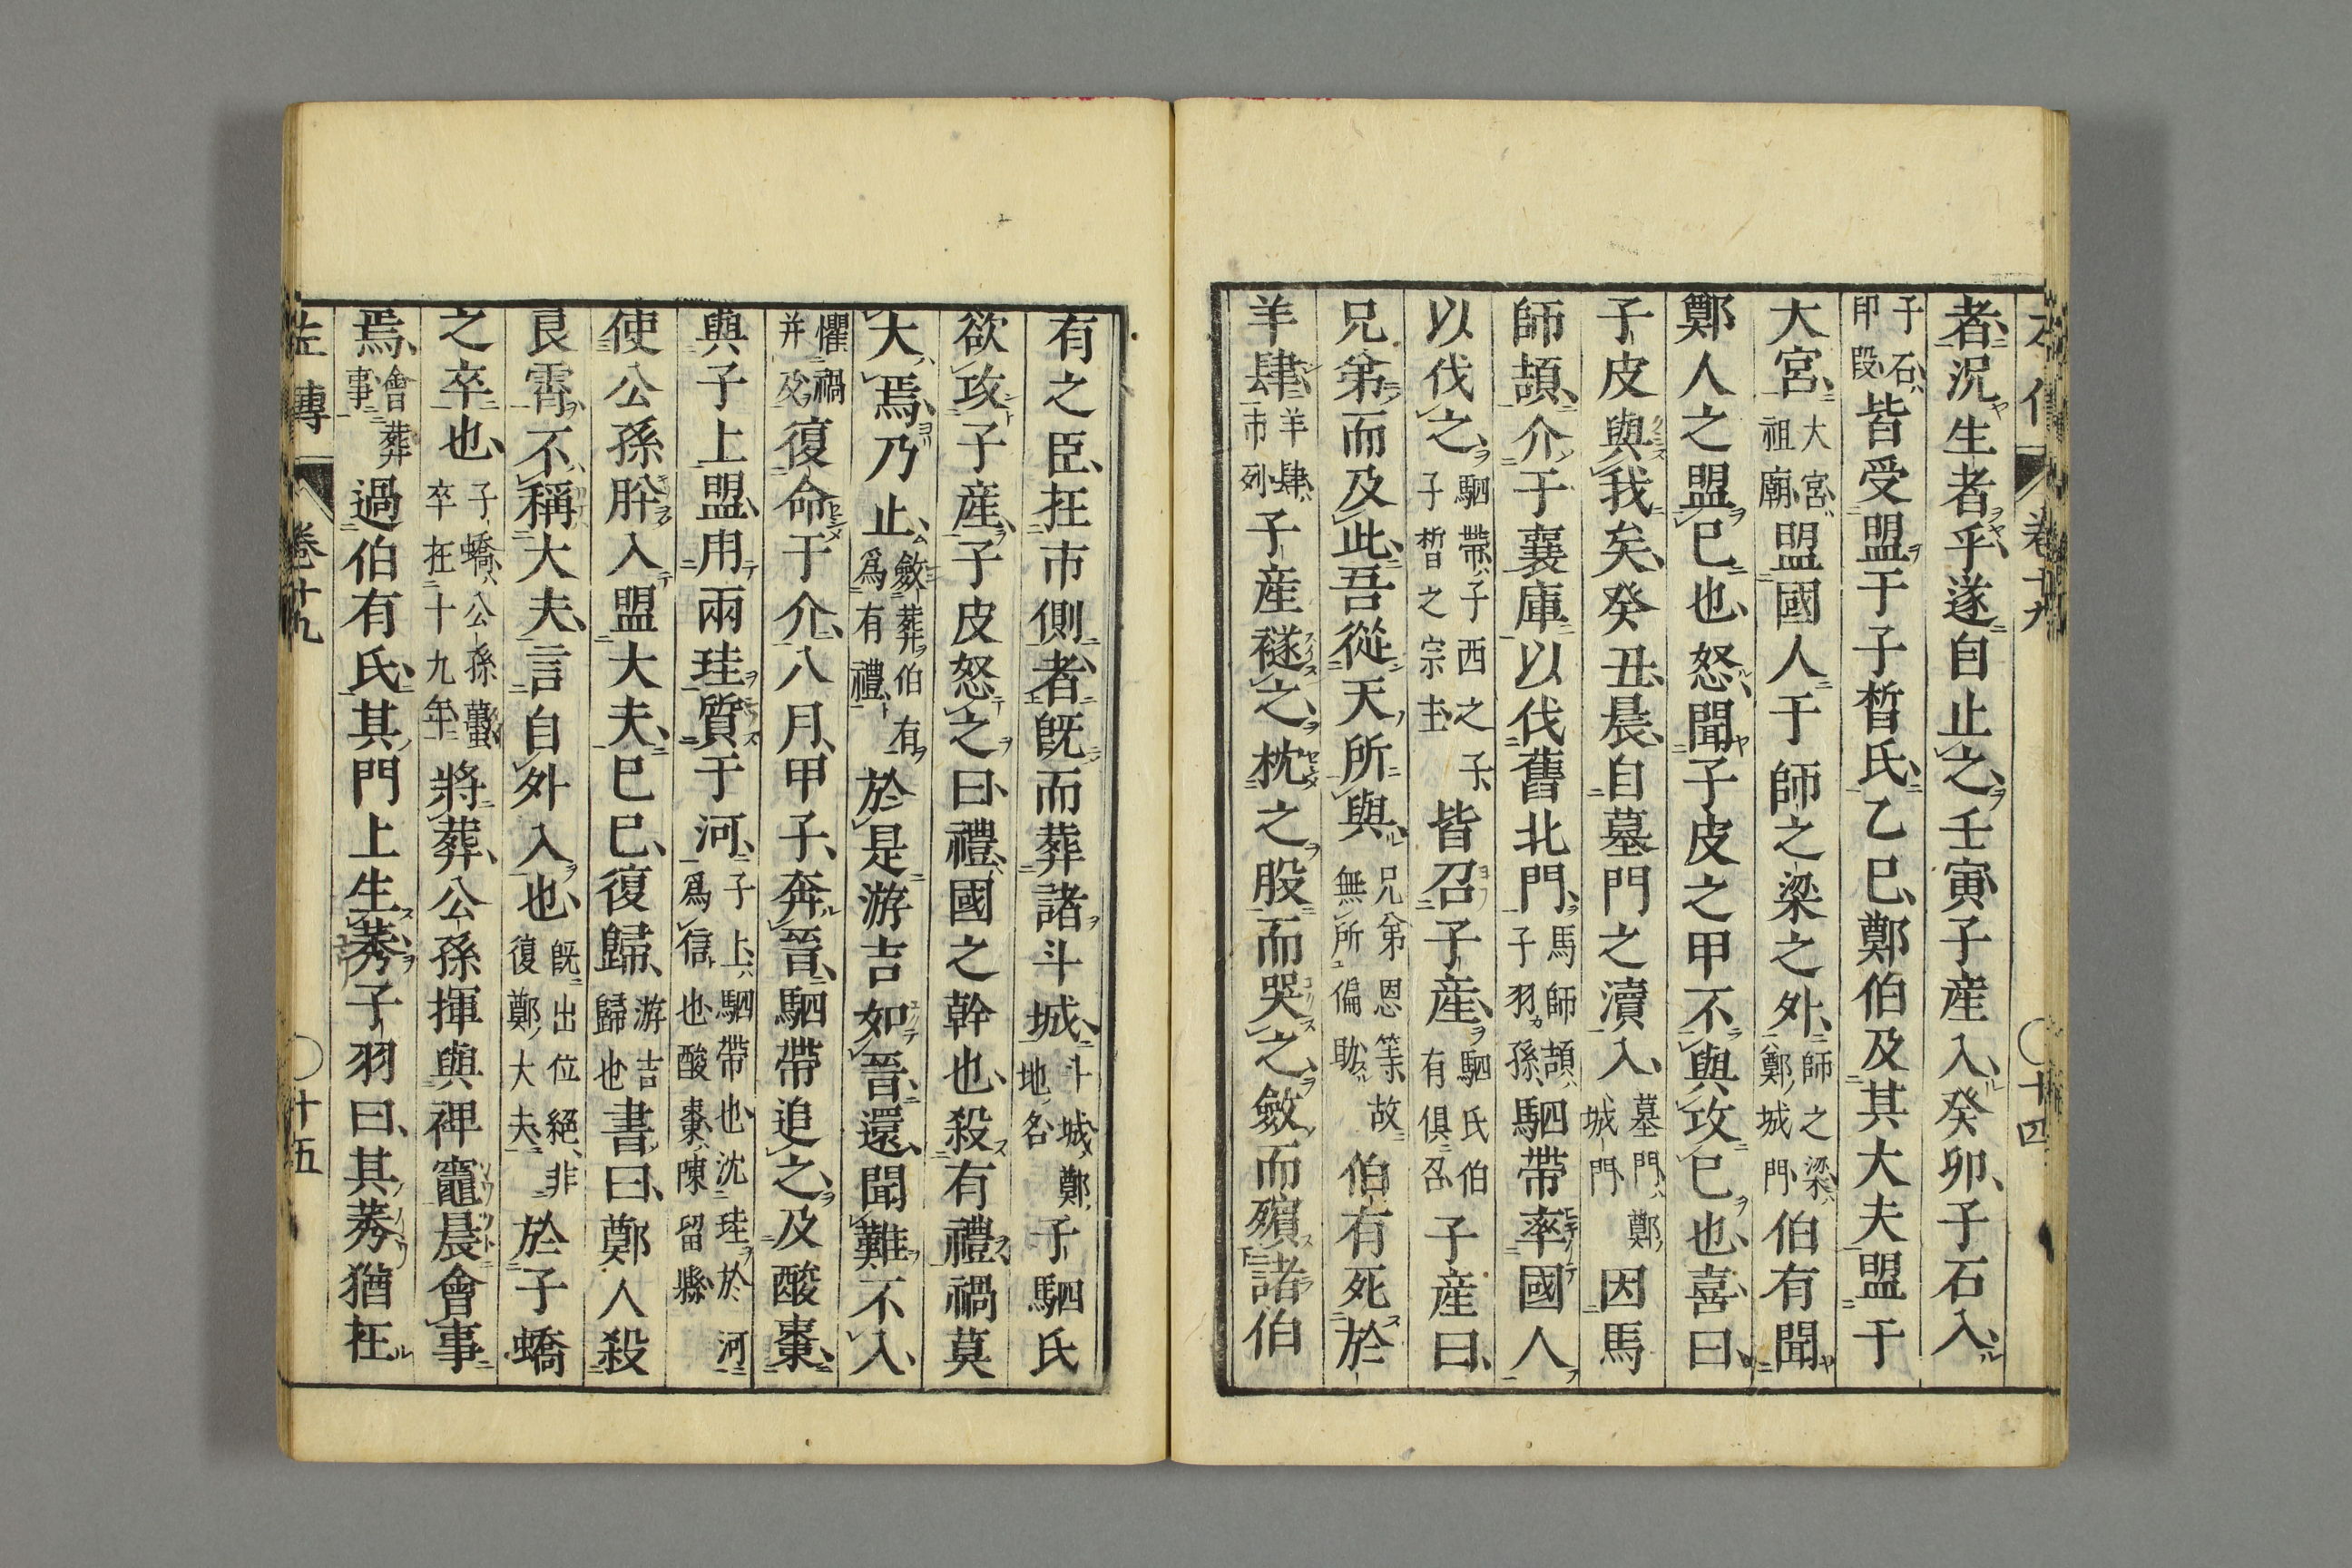 左傳 卷十九 ○十四
者況生者乎遂自止之壬寅子産入癸卯子石入
子石印段皆受盟于子皙氏乙巳鄭伯及其大夫盟于
大宮大宮祖廟盟國人于師之梁之外師之梁鄭城門伯有聞
鄭人之盟巳也怒聞子皮之甲不與攻巳也喜曰
子皮與我矣癸丑晨自墓門之瀆入墓門鄭城門因馬
師頡介于襄庫以伐舊北門馬師頡子羽孫駟帶率國人
以伐之駟帶子西之子子皙之宗主皆召子産駟氏伯有俱召子産曰
兄弟而及此吾從天所與兄弟恩等故無所偏助伯有死於
羊肆羊肆市列子産襚之枕之股而哭之斂而殯諸伯
有之臣在市側者旣而葬諸斗城斗城鄭地名子駟氏
欲攻子産子皮怒之曰禮國之幹也殺有禮禍莫
大焉乃止斂葬伯有爲有禮於是游吉如晉還聞難不入
懼禍并及復命于介八月甲子奔晉駟帶追之及酸棗
與子上盟用兩珪質于河子上駟帶也沈珪於河爲信也酸棗陳留縣
使公孫肸入盟大夫巳巳復歸游吉歸也書曰鄭人殺
良霄不稱大夫言自外入也旣出位絕非復鄭大夫於子蟜
之卒也子蟜公孫蠆卒在十九年將葬公孫揮與裨竈晨會事
焉會葬事過伯有氏其門上生莠子羽曰其莠猶在
左傳 卷十九 ○十五